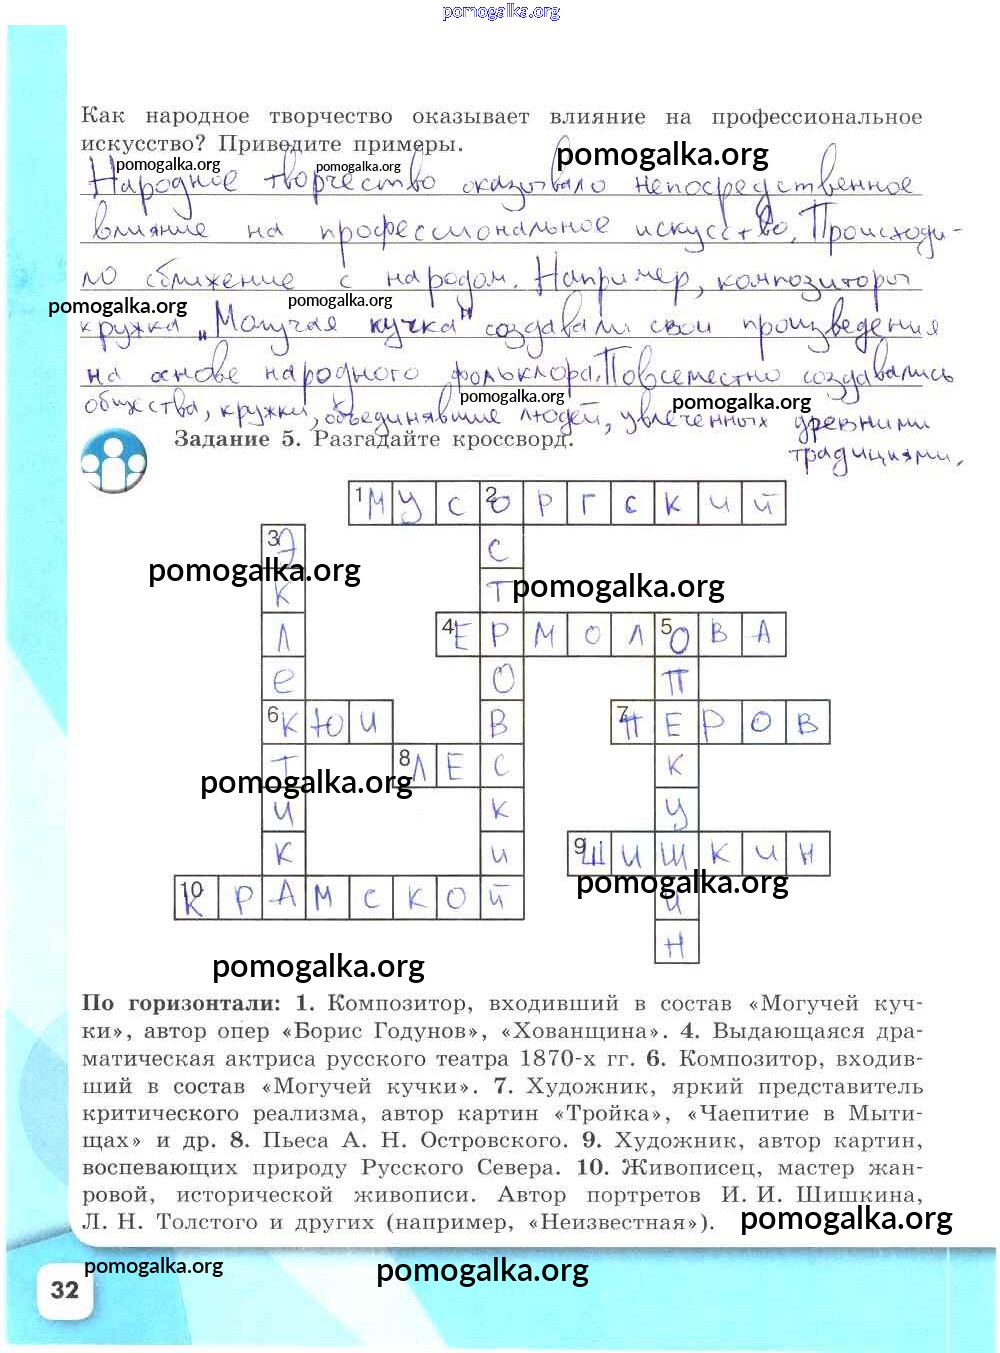 pomogalka.org
Как народное творчество оказывает влияние на профессиональное
искусство? Приведите примеры.
pomogalka.org pomogalka.org pomogalka.org
Народное творчество оказывало непосредственное
влияние на профессиональное искусство. Происходи-
ло сближение с народом. Например, композиторы
pomogalka.org pomogalka.org
кружка „Могучая кучка" создавали свои произведения
на основе народного фольклора. Повсеместно создавались
pomogalka.org pomogalka.org
общества, кружки, объединявшие людей, увлеченных древними
традициями.
Задание 5. Разгадайте кроссворд.
1 М У С 2 О Р Г С К И Й
3 Э С
pomogalka.org pomogalka.org
К Т
Л 4 Е Р М О Л 5 О В А
Е О П
6 К Ю И В 7 П Е Р О В
Т 8 Л Е С К
pomogalka.org
И К У
К И 9 Ш И Ш К И Н
pomogalka.org
10 К Р А М С К О Й И
Н
pomogalka.org
По горизонтали: 1. Композитор, входивший в состав «Могучей куч-
ки», автор опер «Борис Годунов», «Хованщина». 4. Выдающаяся дра-
матическая актриса русского театра 1870-х гг. 6. Композитор, входив-
ший в состав «Могучей кучки». 7. Художник, яркий представитель
критического реализма, автор картин «Тройка», «Чаепитие в Мыти-
щах» и др. 8. Пьеса А. Н. Островского. 9. Художник, автор картин,
воспевающих природу Русского Севера. 10. Живописец, мастер жан-
ровой, исторической живописи. Автор портретов И. И. Шишкина,
Л. Н. Толстого и других (например, «Неизвестная»).
pomogalka.org
pomogalka.org pomogalka.org
32